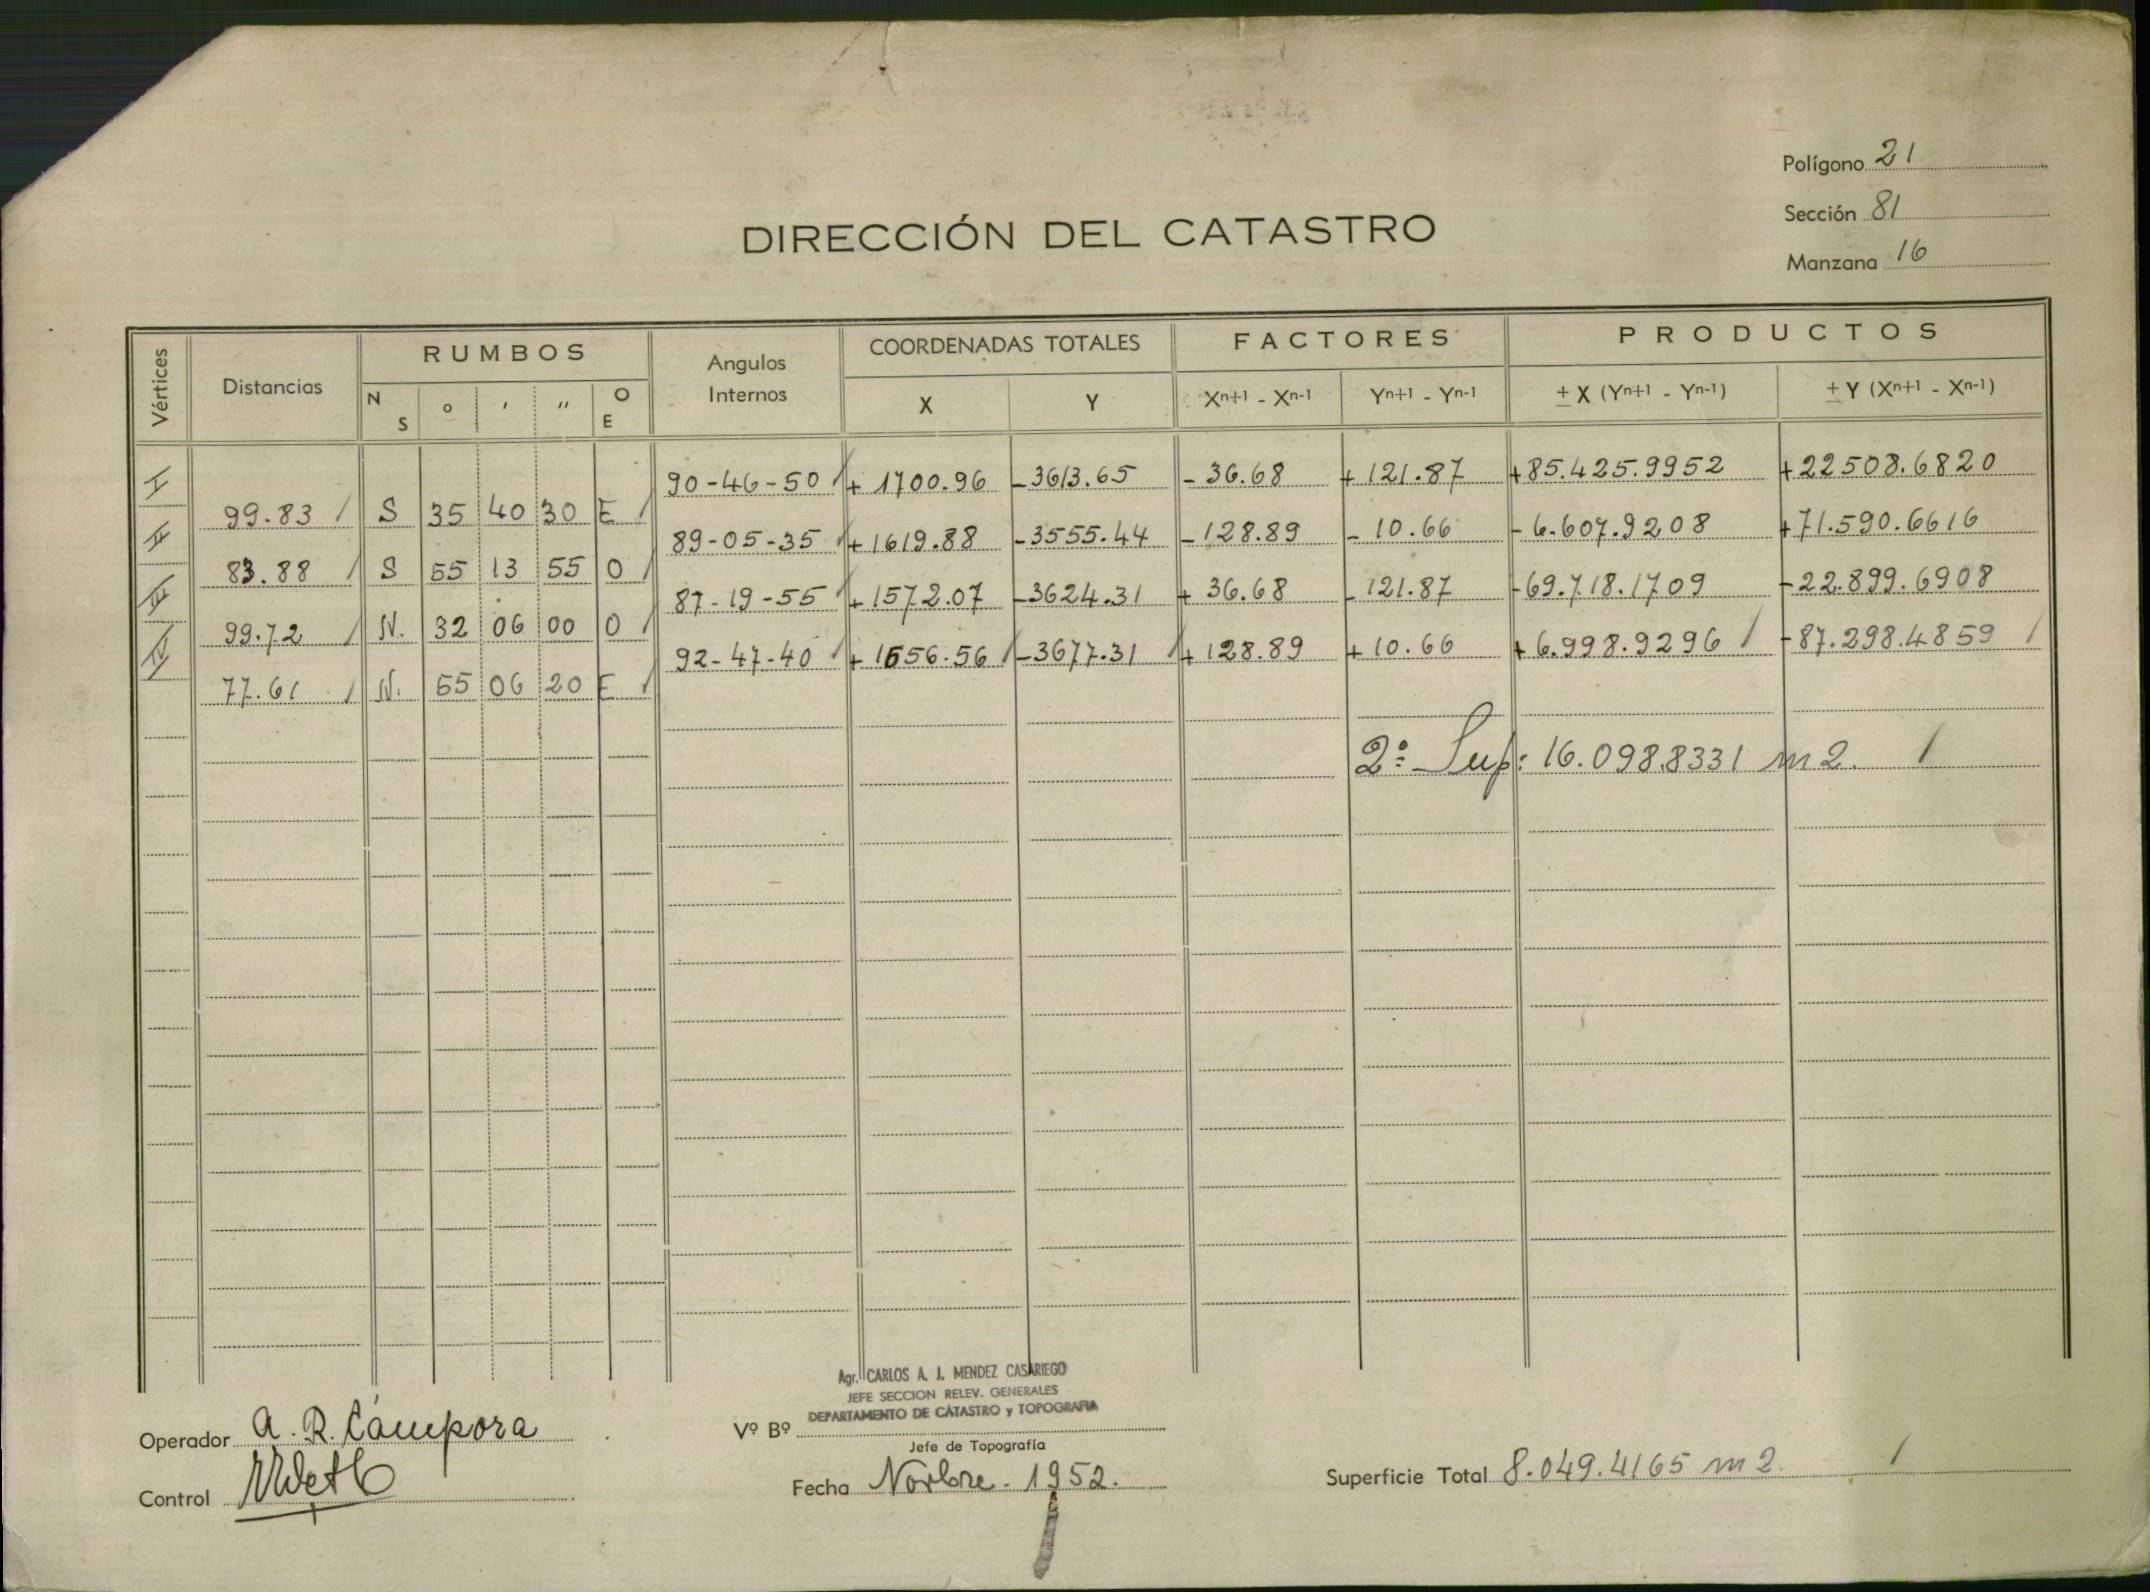 Polígono 21
Sección 81
Manzana 16
DIRECCIÓN DEL CATASTRO
Vértices Distancias RUMBOS Angulos Internos COORDENADAS TOTALES FACTORES PRODUCTOS
N S o ' '' O E X Y Xn+1 - Xn-1 Yn+1 - Yn-1 ± X (Yn+1 - Yn-1) ± Y (Xn+1 - Xn-1)
I 90-46-50 + 1700.96 -3613.65 - 36.68 + 121.87 +85.425.9952 +22508.6820
99.83 S 35 40 30 E
II 89-05-35 +1619.88 -3555.44 -128.89 - 10.66 - 6.607.9208 +71.590.6616
83.88 S 55 13 55 O
III 87-19-55 +1572.07 -3624.31 + 36.68 - 121.87 -69.718.1709 -22.899.6908
99.72 N. 32 06 00 O
IV 92-47-40 +1656.56 -3677.31 +128.89 + 10.66 + 6.998.9296 -87.298.4859
77.61 N. 55 06 20 E
2ª Sup: 16.098.8331 m2.
Agr. CARLOS A. J. MENDEZ CASARIEGO
JEFE SECCION RELEV. GENERALES
DEPARTAMENTO DE CATASTRO y TOPOGRAFIA
Operador A. R. Cámpora
Vº Bº
Jefe de Topografía
Control
Fecha Novbre. 1952.
Superficie Total 8.049.4165 m2.